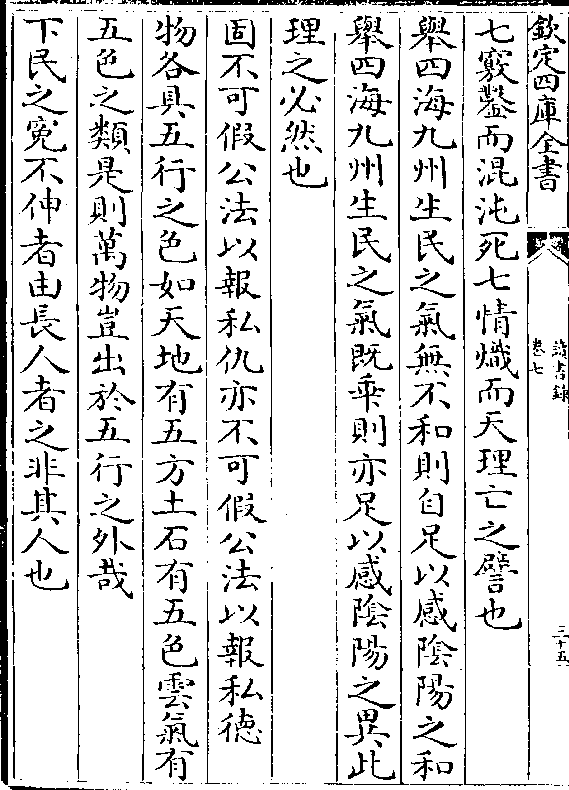 欽定四庫全書
讀書錄
卷七
三十五
七竅鑿而混沌死七情熾而天理亡之譬也
舉四海九州生民之氣無不和則自足以感陰陽之和
舉四海九州生民之氣既乖則亦足以感陰陽之異此
理之必然也
固不可假公法以報私仇亦不可假公法以報私德
物各具五行之色如天地有五方土石有五色雲氣有
五色之類是則萬物豈出於五行之外哉
下民之寃不伸者由長人者之非其人也